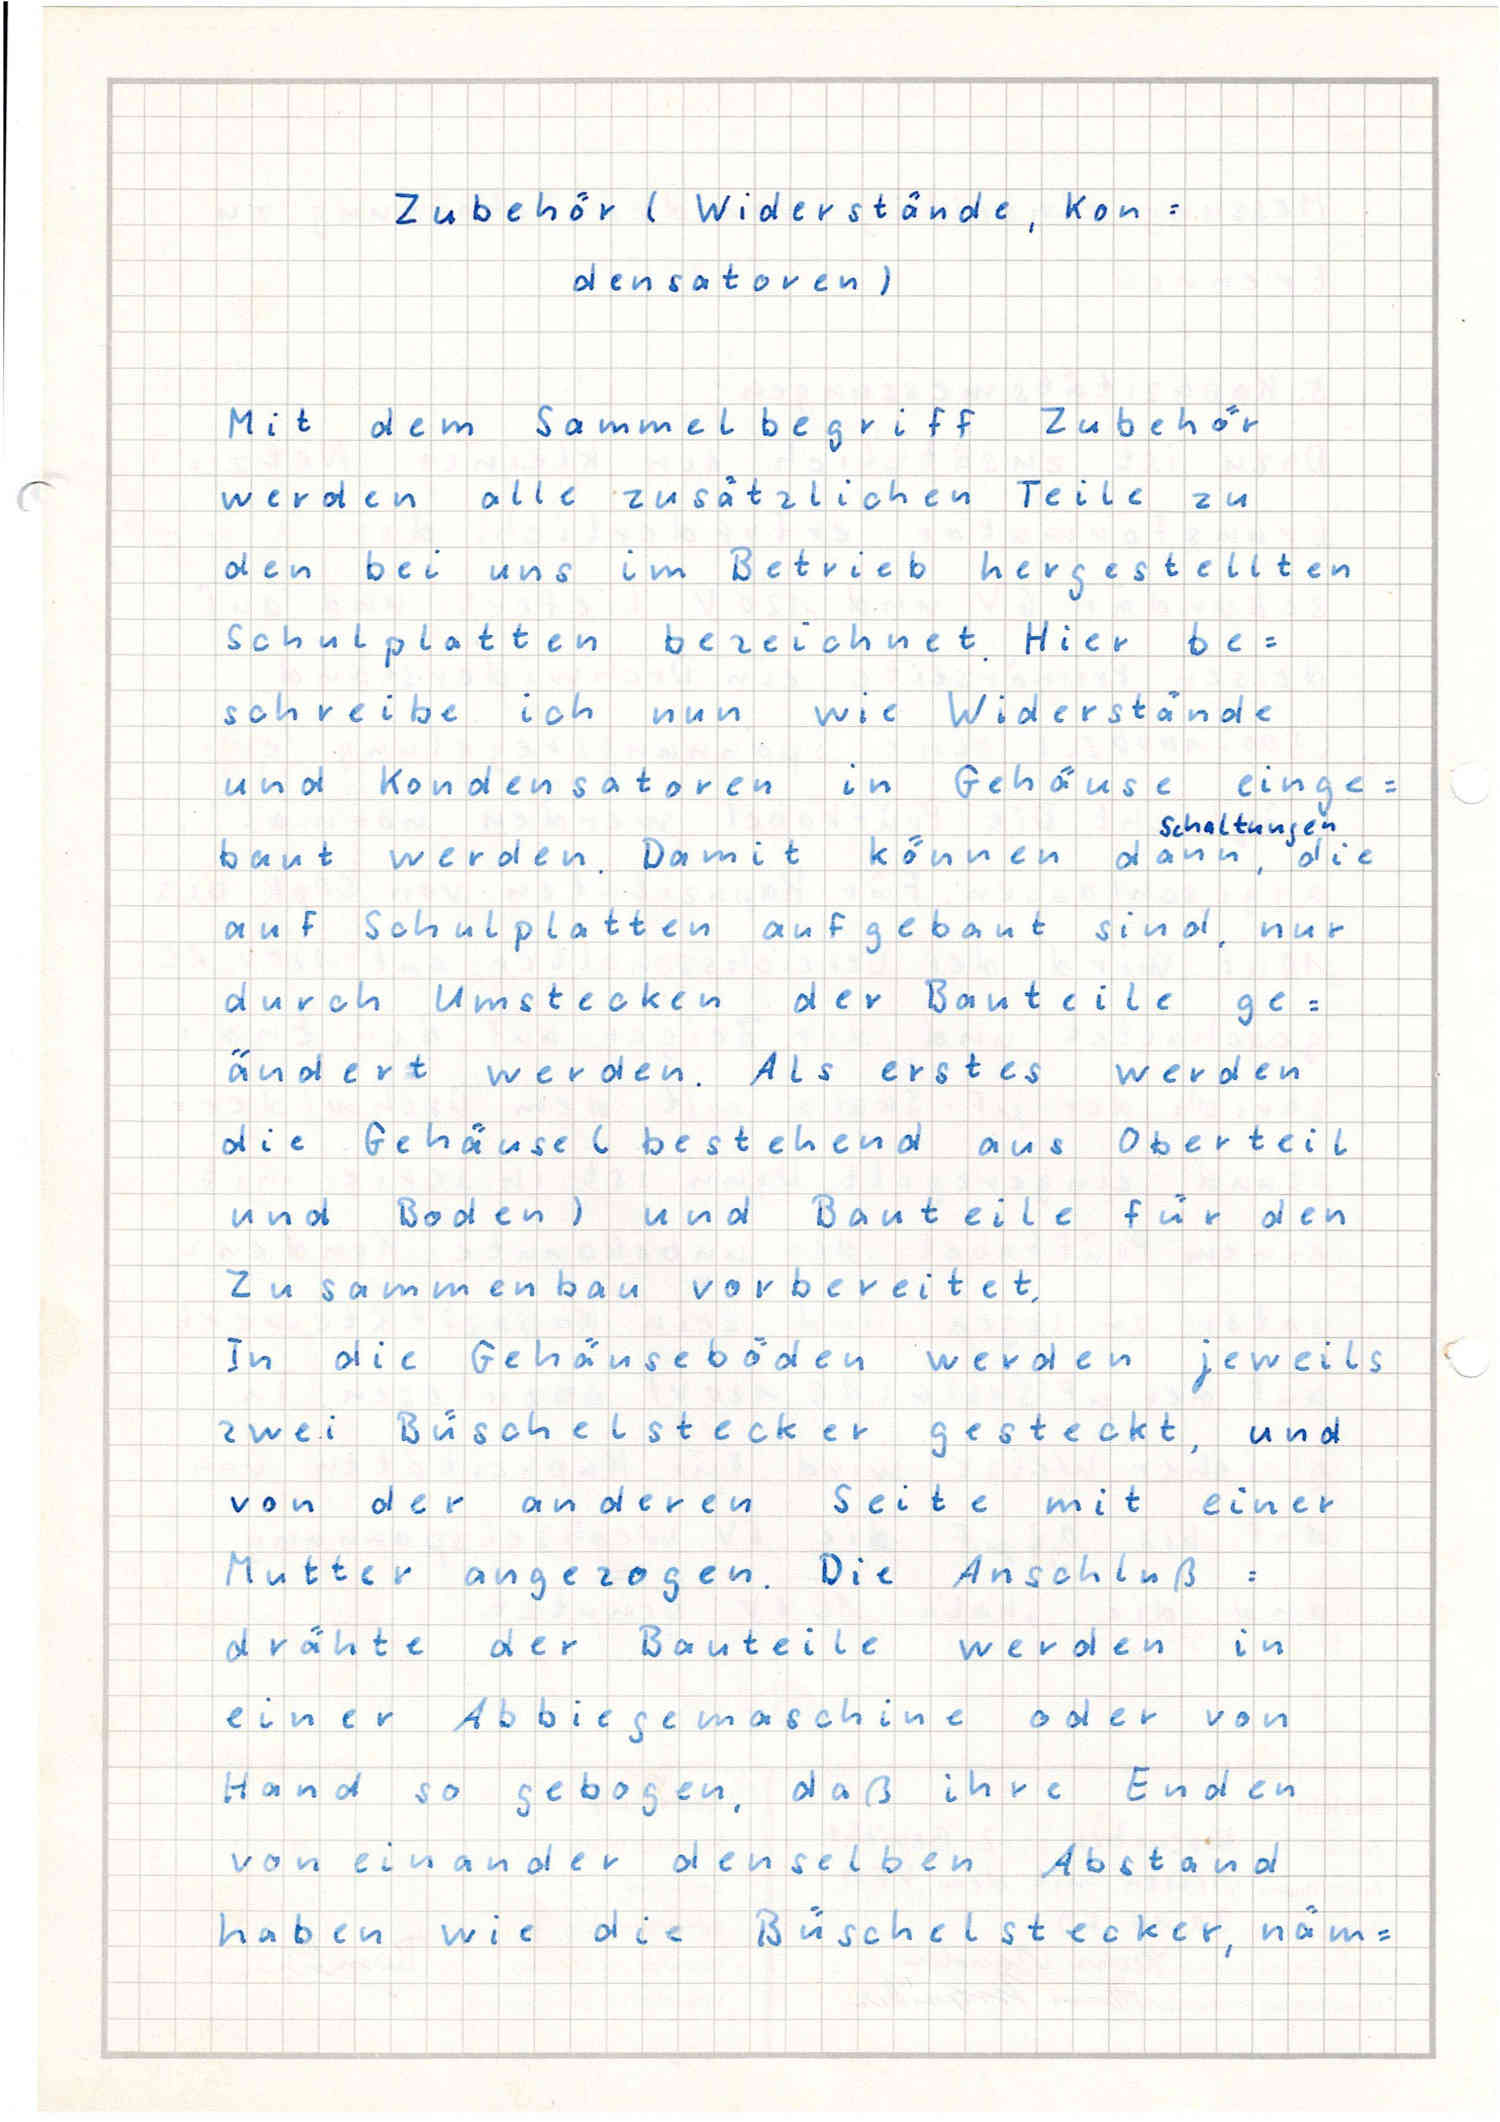 Zubehör ( Widerstände, Kon =
densatoren )
Mit dem Sammelbegriff Zubehör
werden alle zusätzlichen Teile zu
den bei uns im Betrieb hergestellten
Schulplatten bezeichnet. Hier be=
schreibe ich nun wie Widerstände
und Kondensatoren in Gehäuse einge=
Schaltungen
baut werden. Damit können dann, die
auf Schulplatten aufgebaut sind, nur
durch Umstecken der Bauteile ge=
ändert werden. Als erstes werden
die Gehäuse ( bestehend aus Oberteil
und Boden ) und Bauteile für den
Zusammenbau vorbereitet.
In die Gehäuseböden werden jeweils
zwei Büschelstecker gesteckt, und
von der anderen Seite mit einer
Mutter angezogen. Die Anschluß =
drähte der Bauteile werden in
einer Abbiegemaschine oder von
Hand so gebogen, daß ihre Enden
voneinander denselben Abstand
haben wie die Büschelstecker, näm=